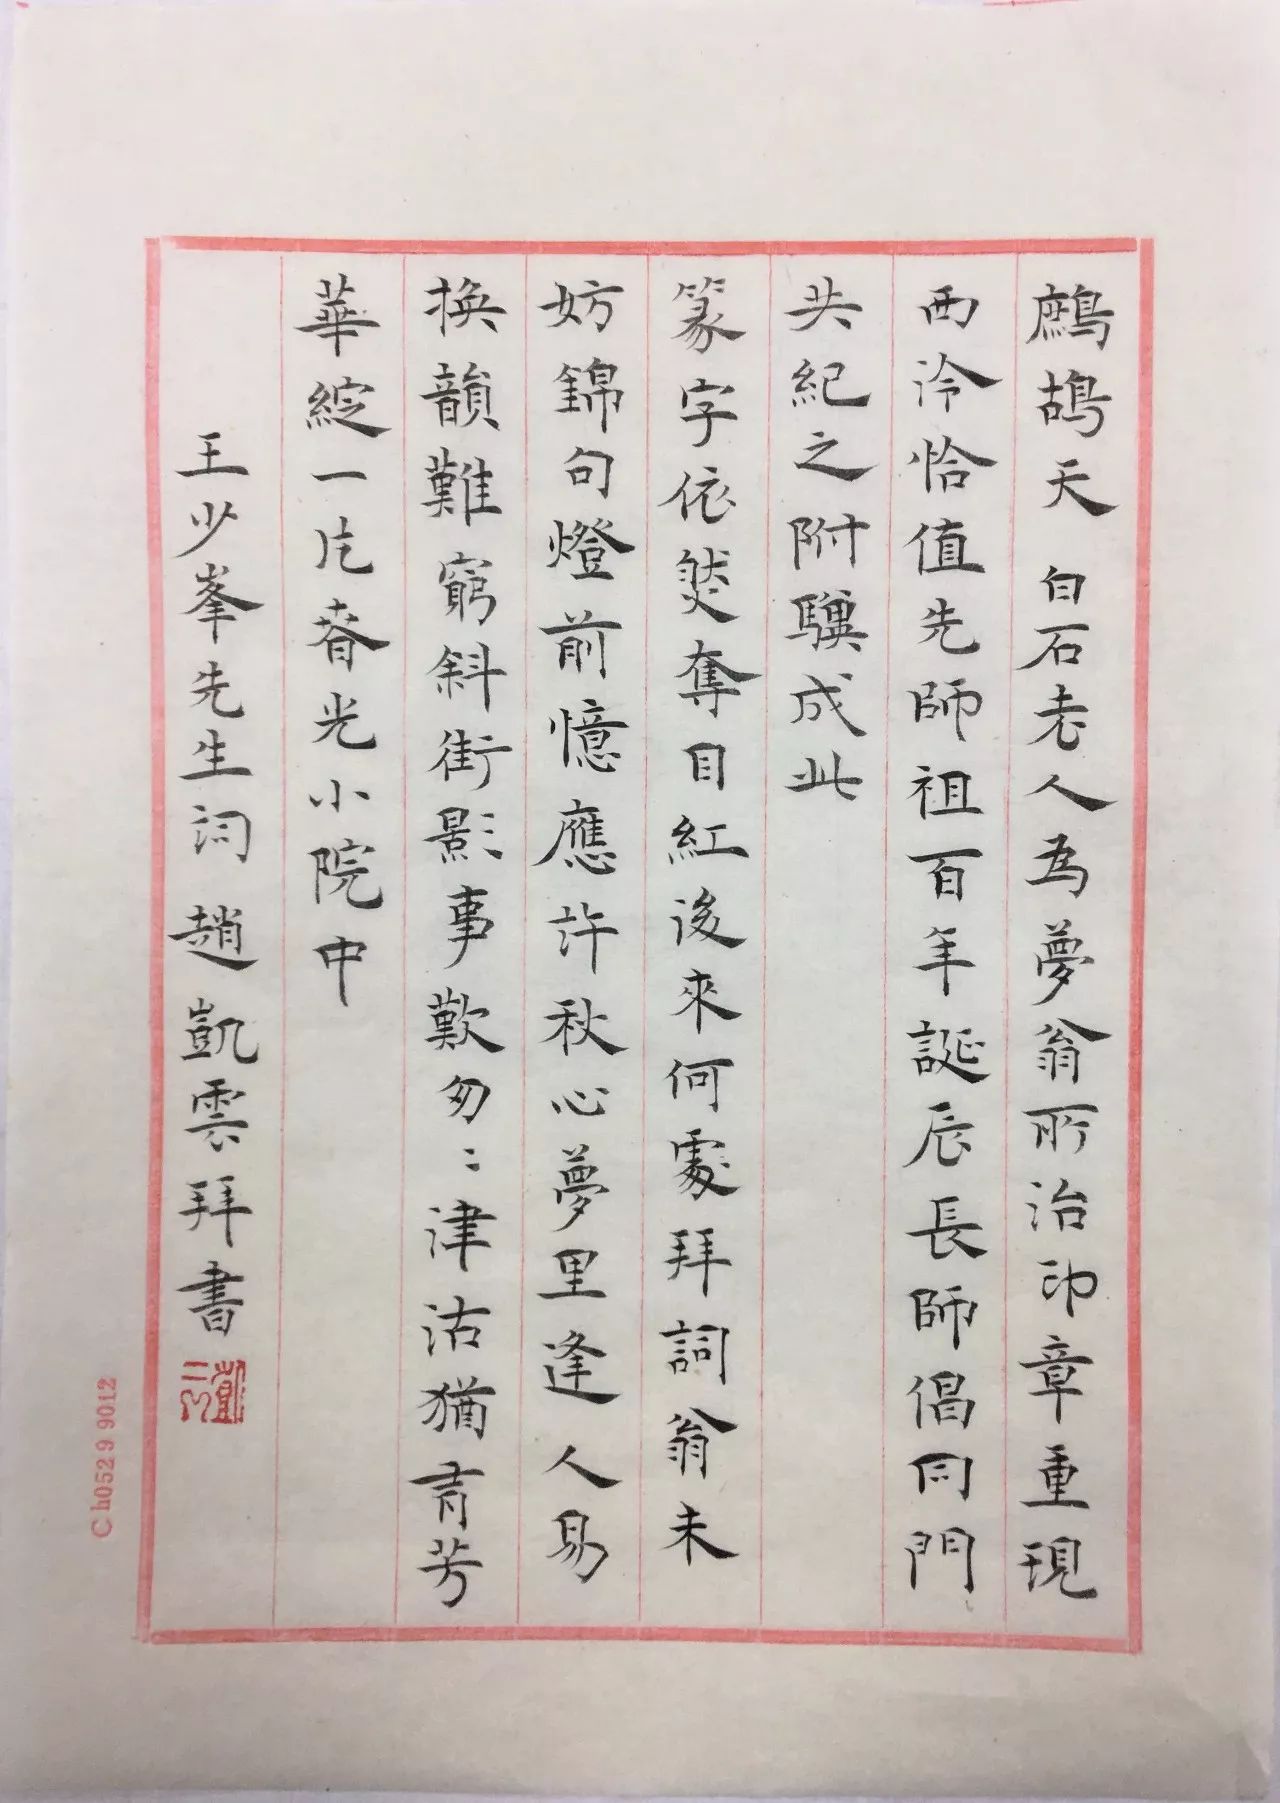 鷓鴣天 白石老人為夢翁所治印章重現
西泠恰值先師祖百年誕辰長師倡同門
共紀之附驥成此
篆字依然奪目紅後來何處拜詞翁未
妨錦句燈前憶應許秋心夢里逢人易
換韻難窮斜街影事歎匆〻津沽猶有芳
華綻一片春光小院中
王少峯先生詞 趙凱雲拜書
Ch0529 9012